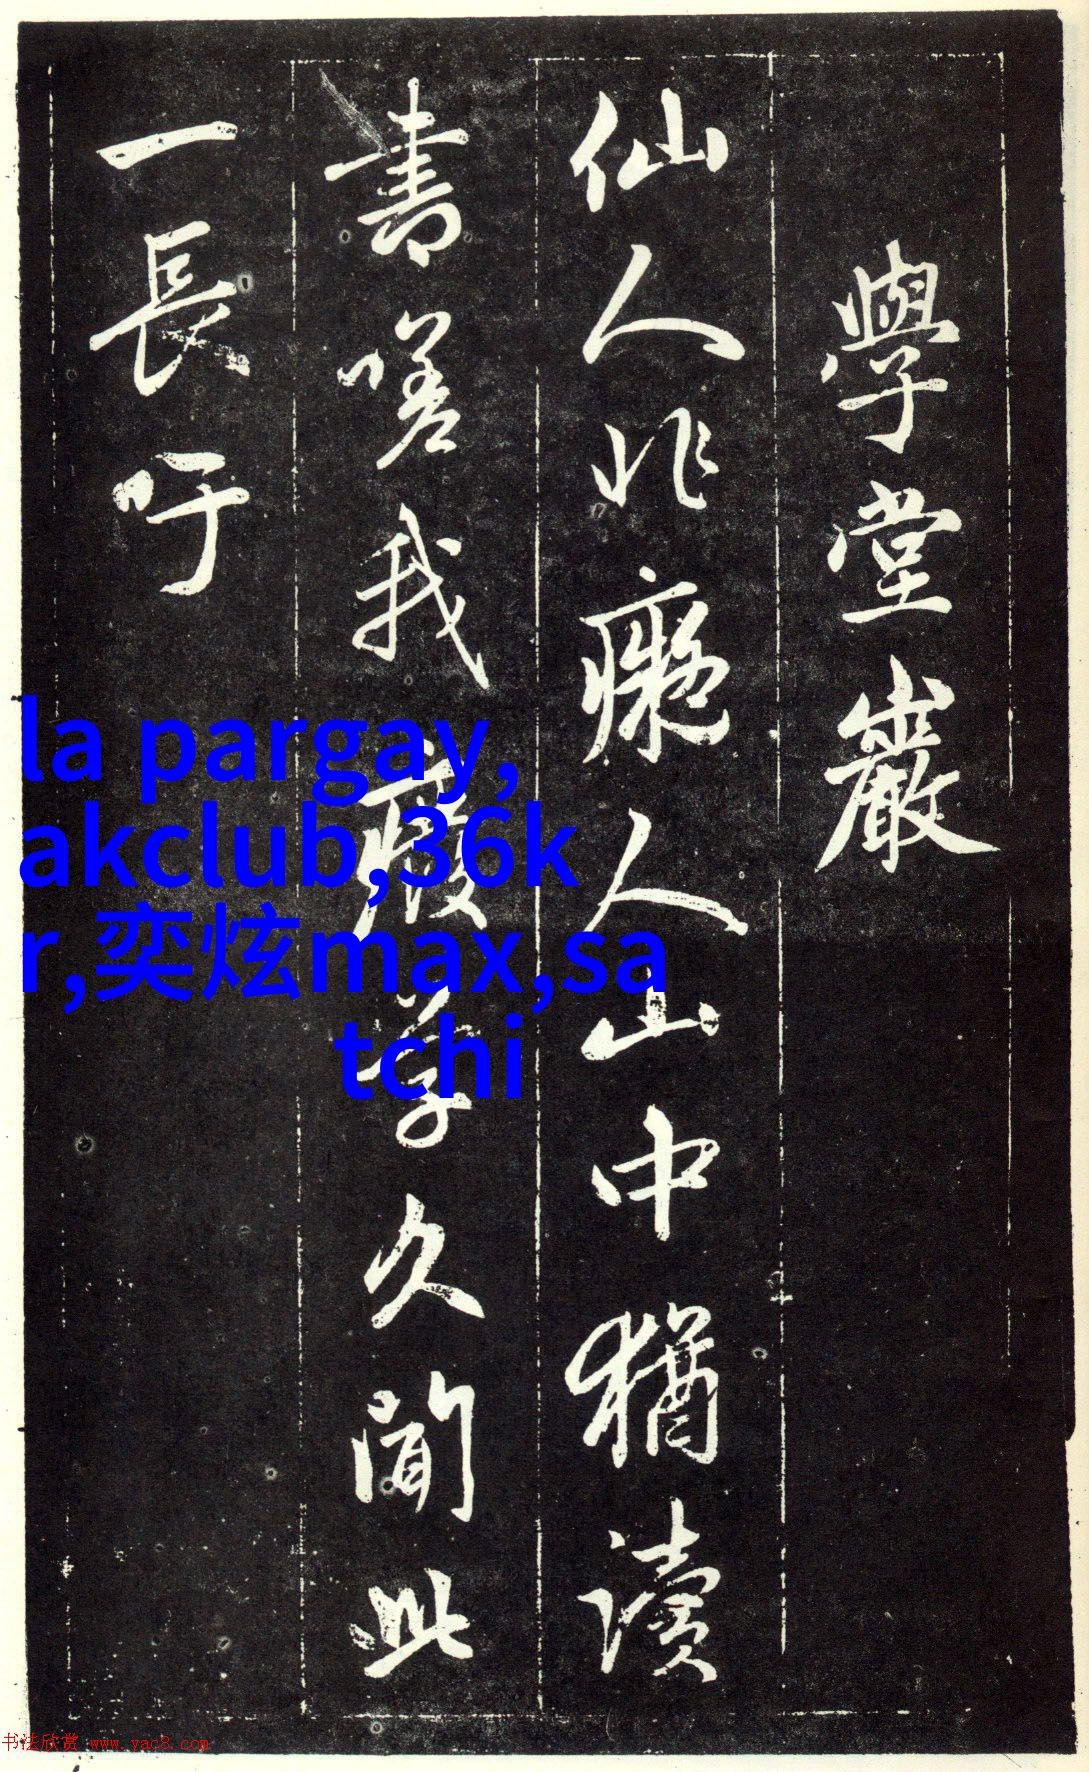 學堂巖
仙人非癡人山中猶讀
書嗟我廢學久聞此
一長吁
la pargay,
akclub,36k
r,奕炫max,sa
tchi
书法欣赏 www.yac8.com